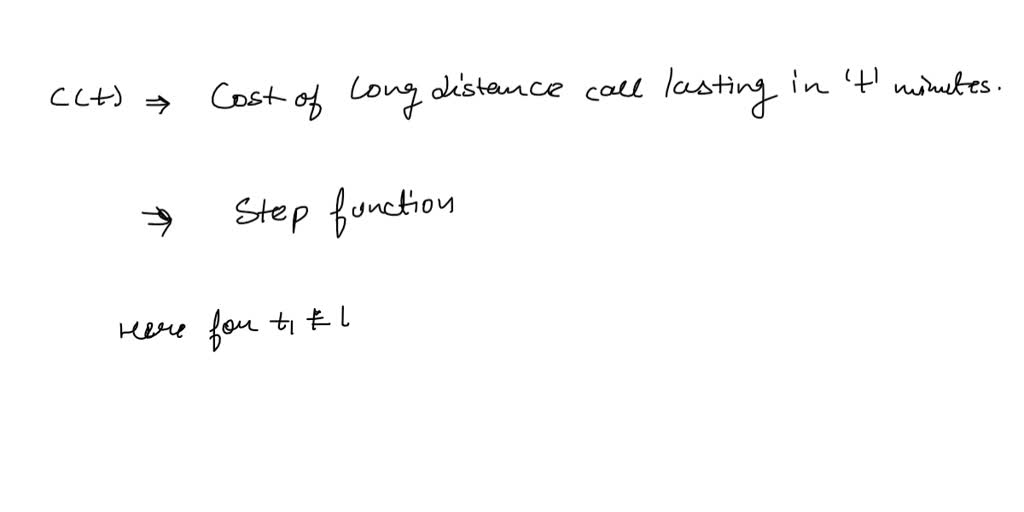 C(t) ⇒ Cost of Long distance call lasting in 't' minutes.
⇒ Step function
Here for t₁